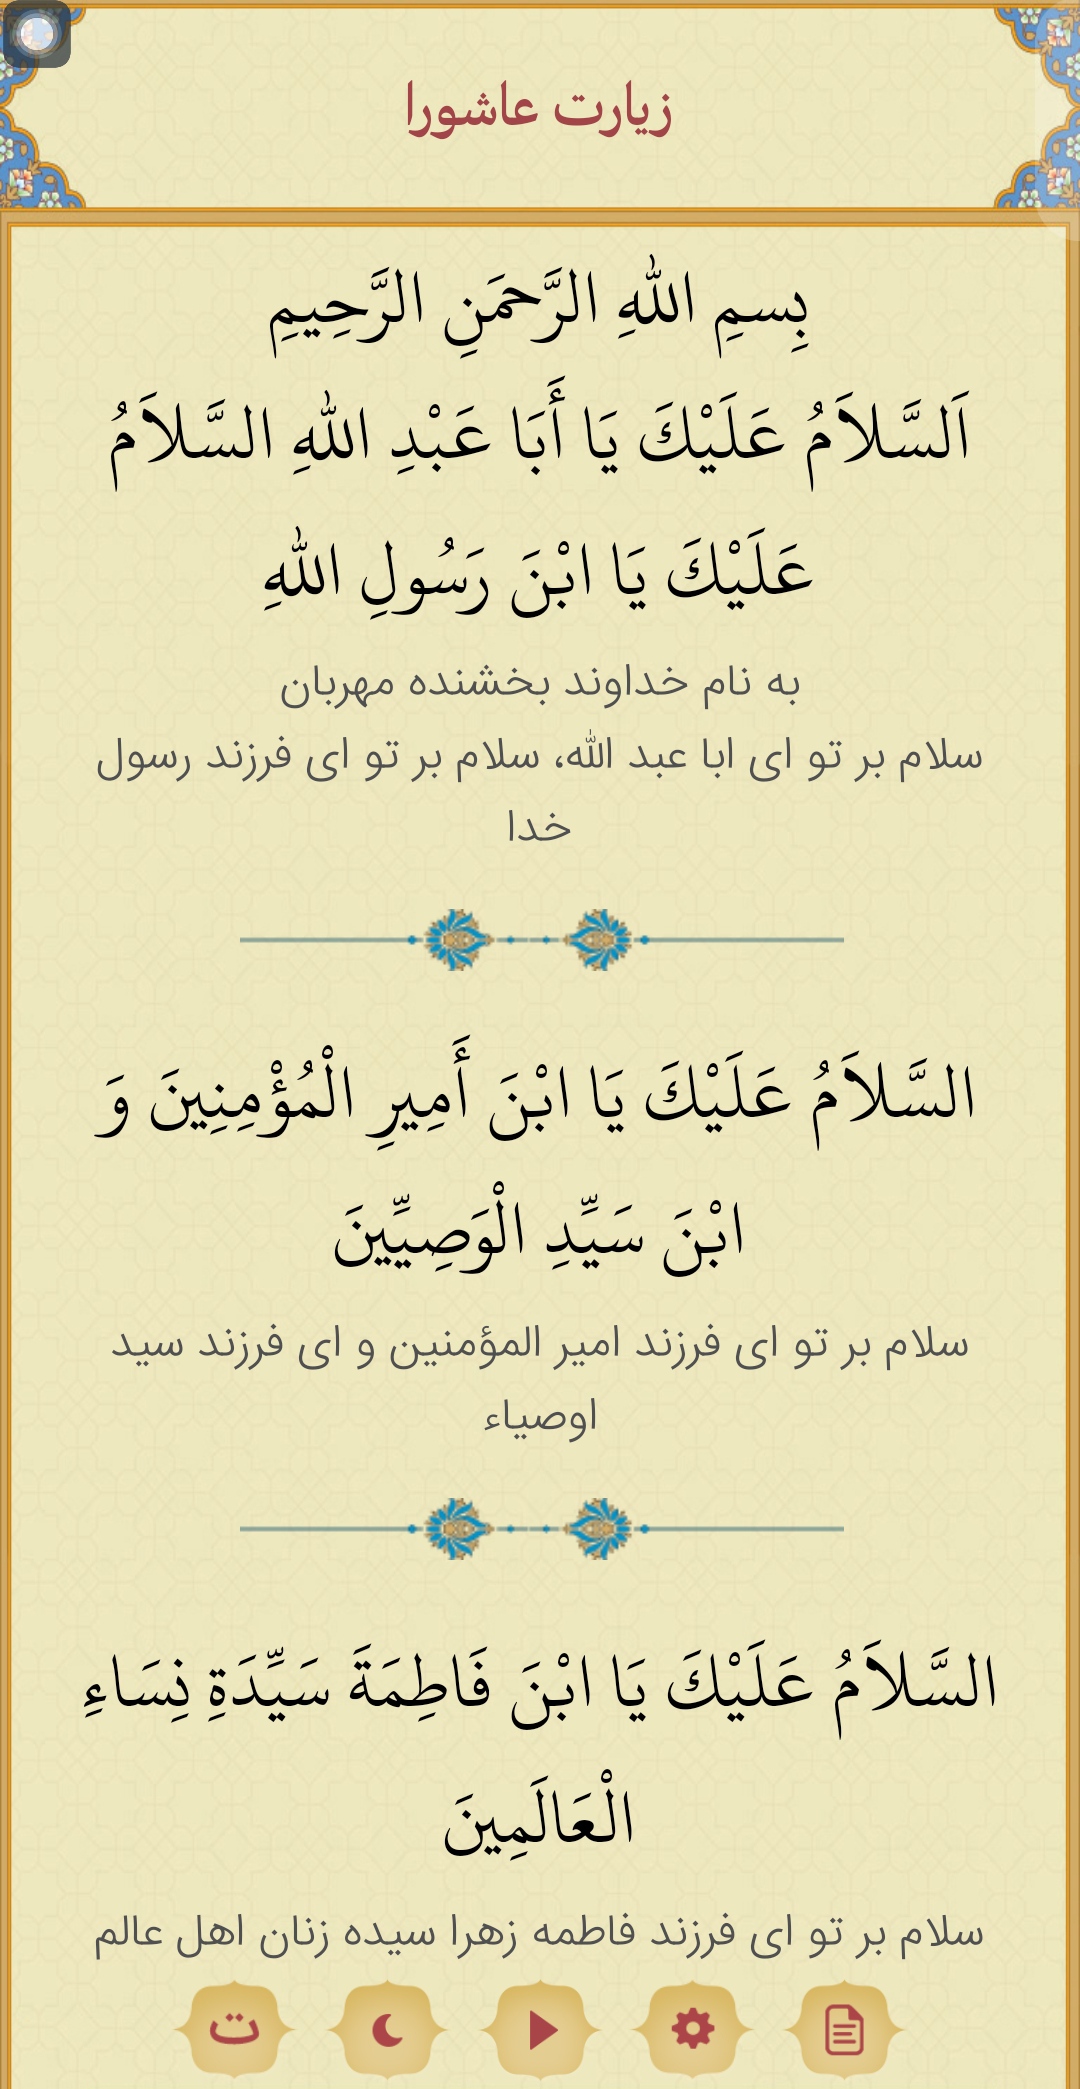 زیارت عاشورا
بِسمِ اللهِ الرَّحمَنِ الرَّحِیمِ
اَلسَّلاَمُ عَلَيْكَ يَا أَبَا عَبْدِ اللهِ السَّلاَمُ
عَلَيْكَ يَا ابْنَ رَسُولِ اللهِ
به نام خداوند بخشنده مهربان
سلام بر تو ای ابا عبد الله، سلام بر تو ای فرزند رسول
خدا
السَّلاَمُ عَلَيْكَ يَا ابْنَ أَمِيرِ الْمُؤْمِنِينَ وَ
ابْنَ سَيِّدِ الْوَصِيِّينَ
سلام بر تو ای فرزند امیر المؤمنین و ای فرزند سید
اوصیاء
السَّلاَمُ عَلَيْكَ يَا ابْنَ فَاطِمَةَ سَيِّدَةِ نِسَاءِ
الْعَالَمِينَ
سلام بر تو ای فرزند فاطمه زهرا سیده زنان اهل عالم
ت